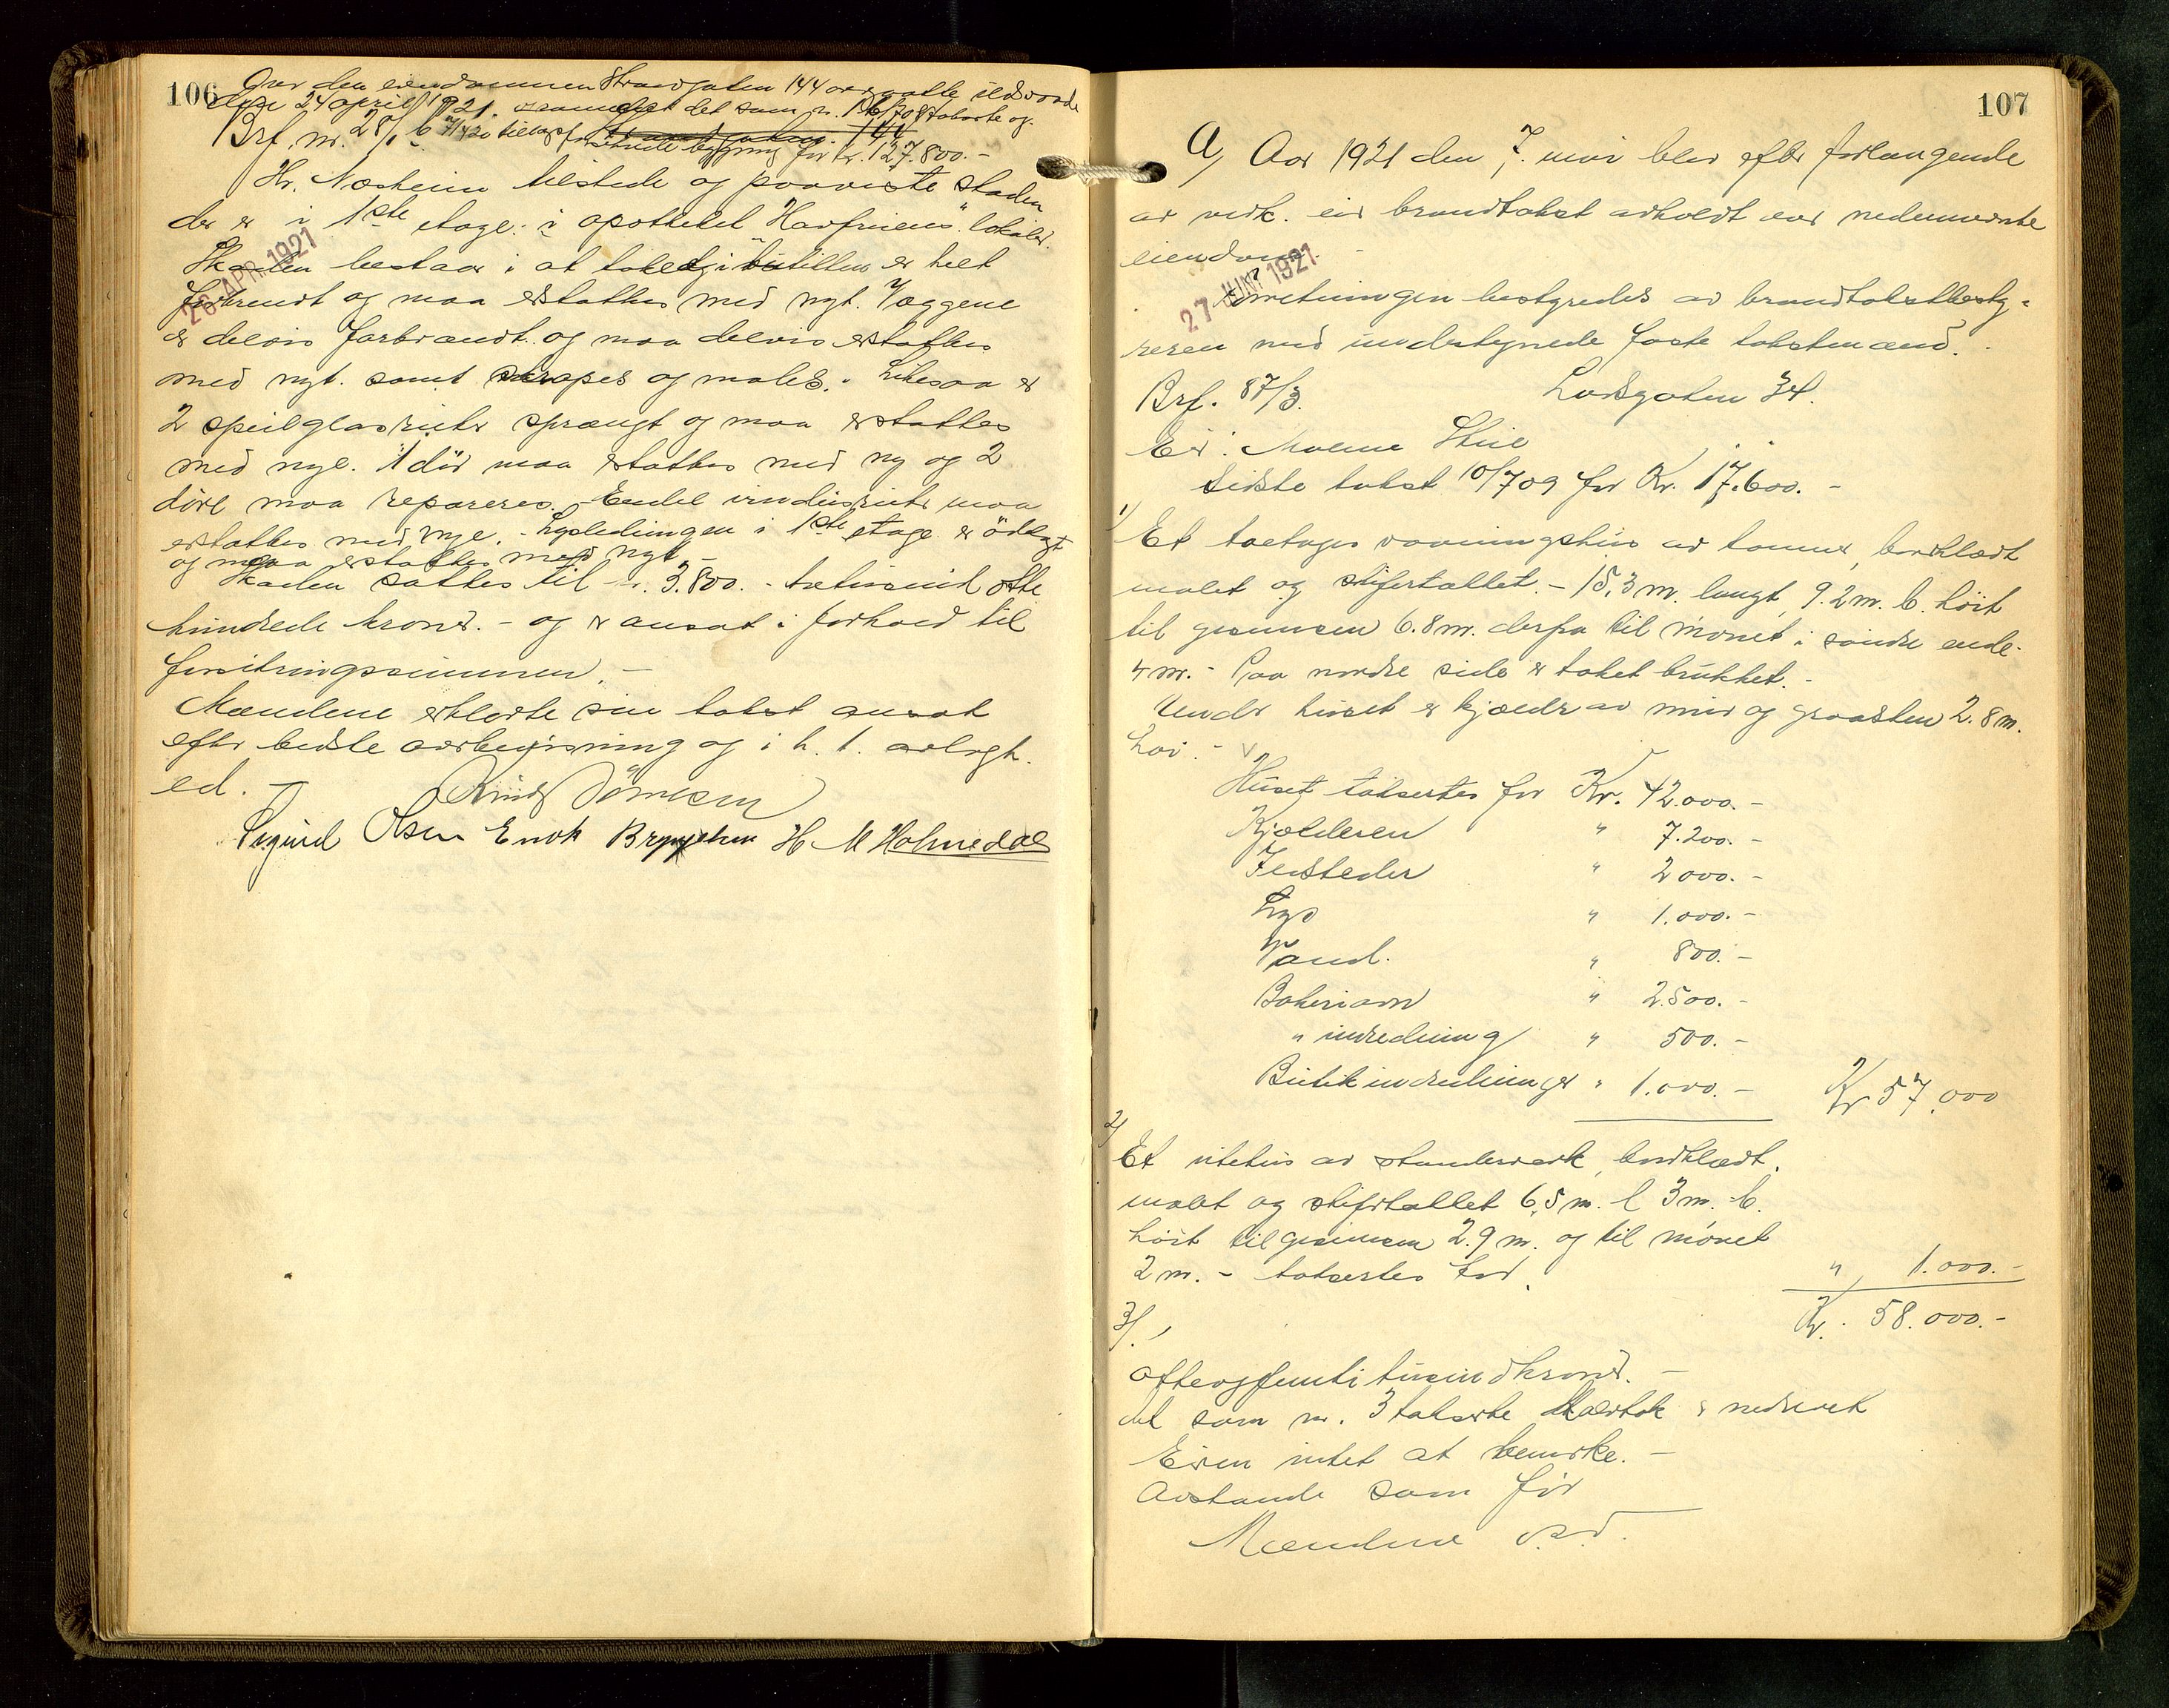 106
Over den eiendommen Strandgaten 144 overgaatte ildsvaade
den 24 april 1921. det som nr. 1 16/7 08 takserte og
Brf. nr. 28/1 b 7/4 20 tillagt Strandgaten 144
bygning for kr. 127.800.-
Hr. Næsheim tilstede og paaviste skaden
der er i 1ste etage: i apotheket "Havfruens" lokaler.
26 APR. 1921
Skaden bestaar i at taket i butikken er helt
forbrendt og maa erstattes med nyt. Væggene
er delvis forbrændt og maa delvis erstattes
med nyt. samt skrapes og males. Likesaa er
2 speilglasruter sprængt og maa erstattes
med nye. 1 dör maa erstattes med ny og 2
döre maa repareres. Endel vinduesruter maa
erstattes med nye. - Lysledningen i 1ste etage er ödelagt
og maa erstattes med nyt. -
Skaden sættes til kr. 3.800. - tretusind otte
hundrede kroner. - og er ansat i forhold til
forsikringssummen. -
Mændene erklærte sin takst ansat
efter bedste overbevisning og i h. t. avlagt
ed. -
Knud Tömesen
Sigurd Olsen Enok Bryngelsen H M Holmedal
107
a, Aar 1921 den 7. mai blev efter forlangende
av vedk. eier brandtakst avholdt over nedennævnte
eiendom. -
27 JUNI 1921
Forretningen bestyredes av brandtakstbesty-
reren med undertegnede faste takstmænd. -
Brf. 87/3. Lodsgaten 34.
Eier: Malene Skeie
Sidste takst 10/7 09 for Kr. 17.600. -
1)
Et toetages vaaningshus av tømmer, bordklædt
malet og skifertækket. - 15,3 m. langt, 9.2 m. b. höit
til gesimsen 6.8 m. derfra til mönet i söndre ende
4 m. - Paa nordre side er taket brukket. -
Under huset er kjælder av mur og graasten 2.8 m.
höi. -
Huset takseres for Kr. 42.000. -
Kjælderen " 7.200. -
Ildsteder " 2000. -
Lys " 1.000. -
Vand. " 800. -
Bakeriovn " 2.500. -
" indredning " 500. -
Butikindredninger " 1.000. - Kr 57.000
2)
Et utehus av standerverk, bordklædt,
malet og skifertækket 6,5 m. l. 3 m. b.
höit til gesimsen 2.9 m. og til mönet
2 m. - takseres for. " 1.000. -
3/. Kr. 58.000. -
Otteogfemti tusind kroner. -
det som nr. 3 takserte er nedrevet
Eieren intet at bemerke. -
Avstande som för
Mændene